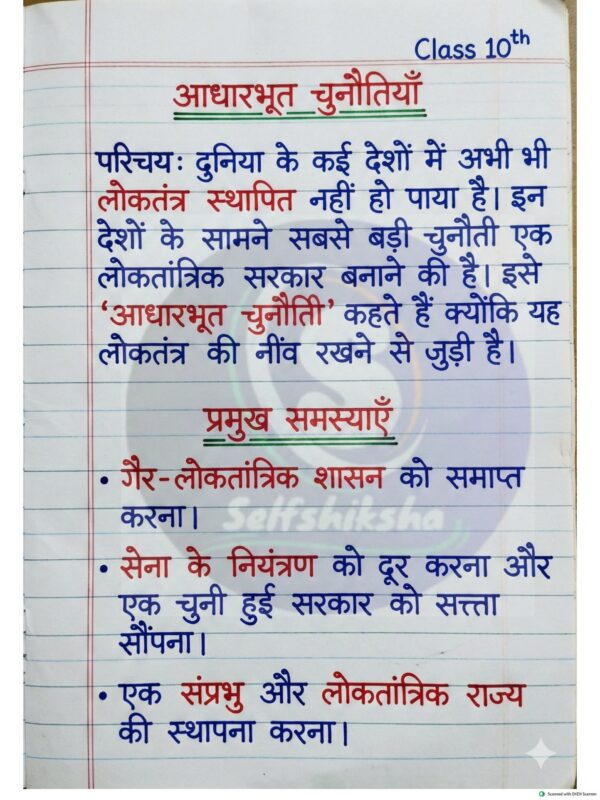 Class 10th
आधारभूत चुनौतियाँ
परिचय: दुनिया के कई देशों में अभी भी
लोकतंत्र स्थापित नहीं हो पाया है। इन
देशों के सामने सबसे बड़ी चुनौती एक
लोकतांत्रिक सरकार बनाने की है। इसे
‘आधारभूत चुनौतिी’ कहते हैं क्योंकि यह
लोकतंत्र की नींव रखने से जुड़ी है।
प्रमुख समस्याएँ
• गैर-लोकतांत्रिक शासन को समाप्त
करना।
Selfshiksha
• सेना के नियंत्रण को दूर करना और
एक चुनी हुई सरकार को सत्त्ता
सौंपना।
• एक संप्रभु और लोकतांत्रिक राज्य
की स्थापना करना।
Scanned with OKEN Scanner